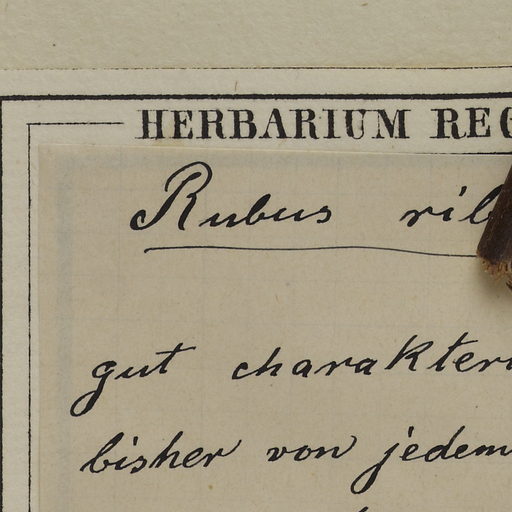 HERBARIUM REG
Rubus rib
gut charakteri
bisher von jedem